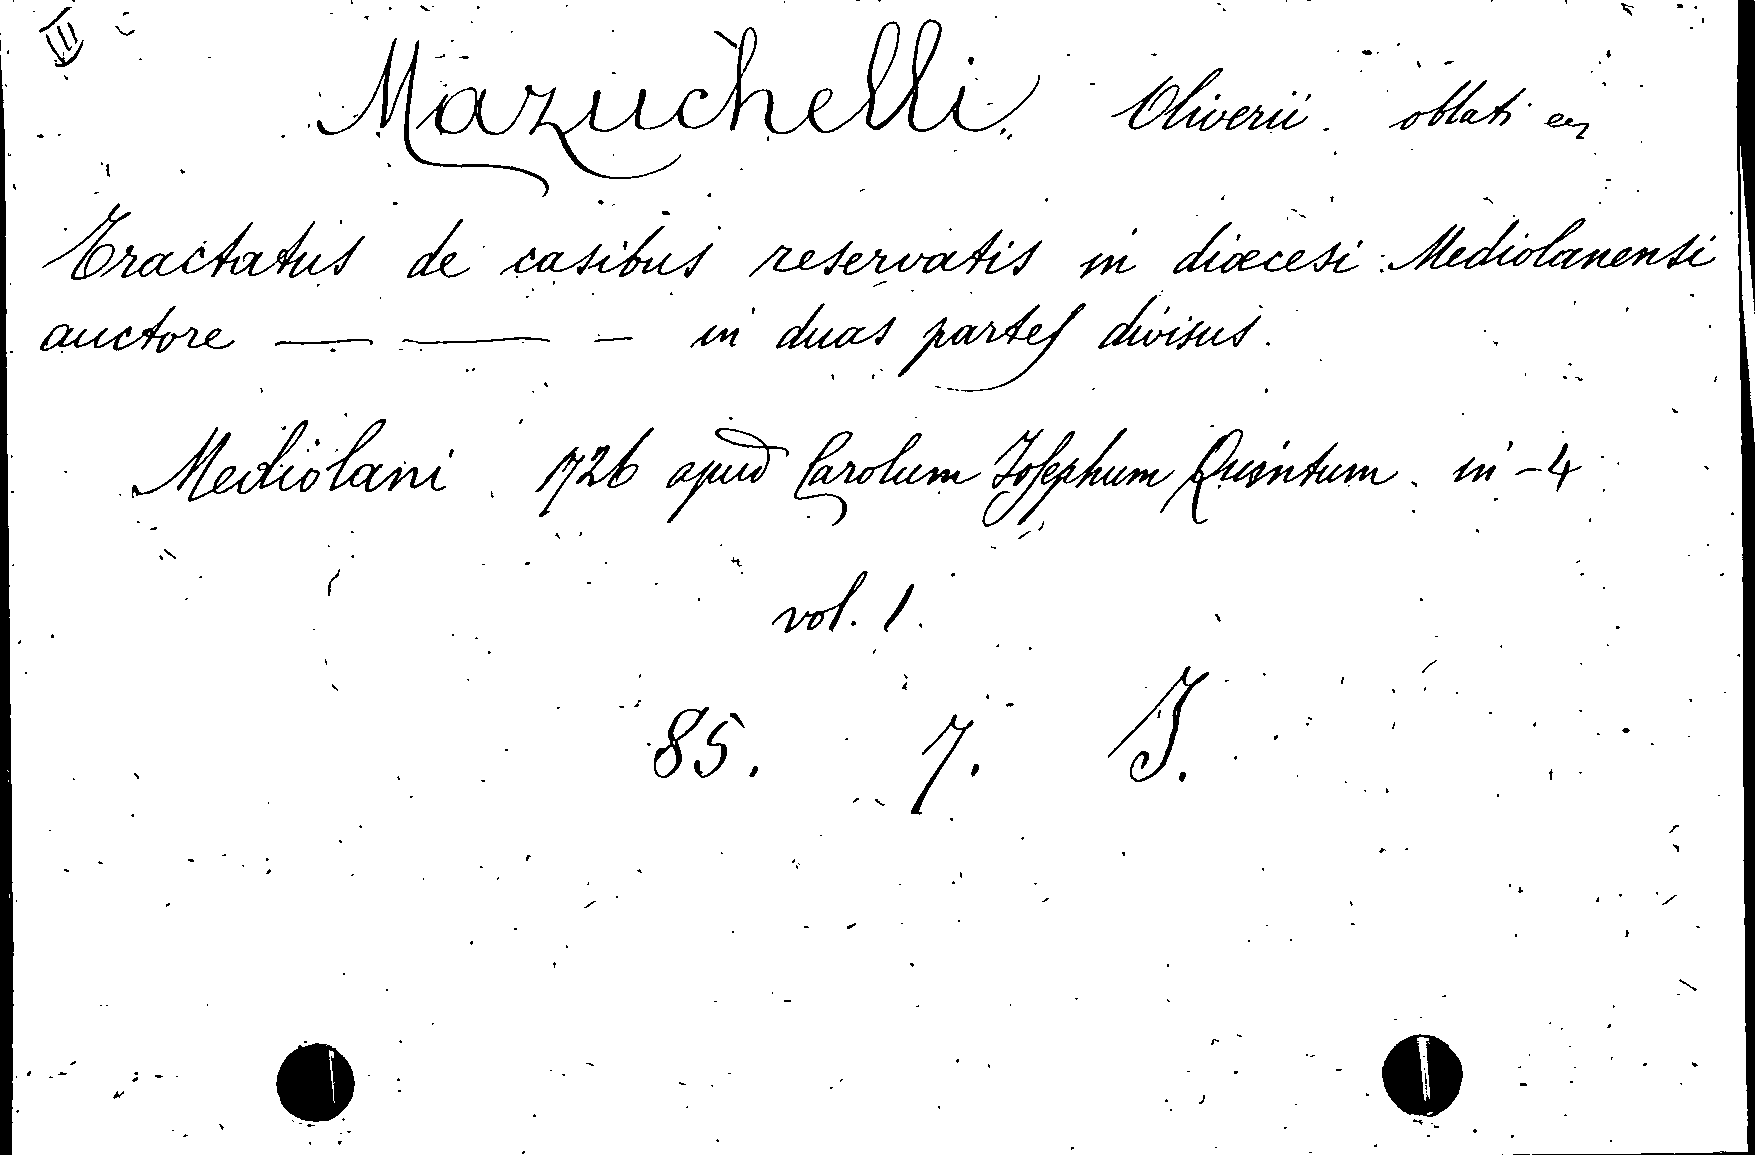 III
Mazuchelli Oliverii. oblati
Tractatus de casibus reservatis in diœcesi Mediolanensi
auctore — — — in duas partes divisus.
Mediolani 1726 apud Carolum Josephum Quintum. in-4
vol. 1.
85. 7. J.